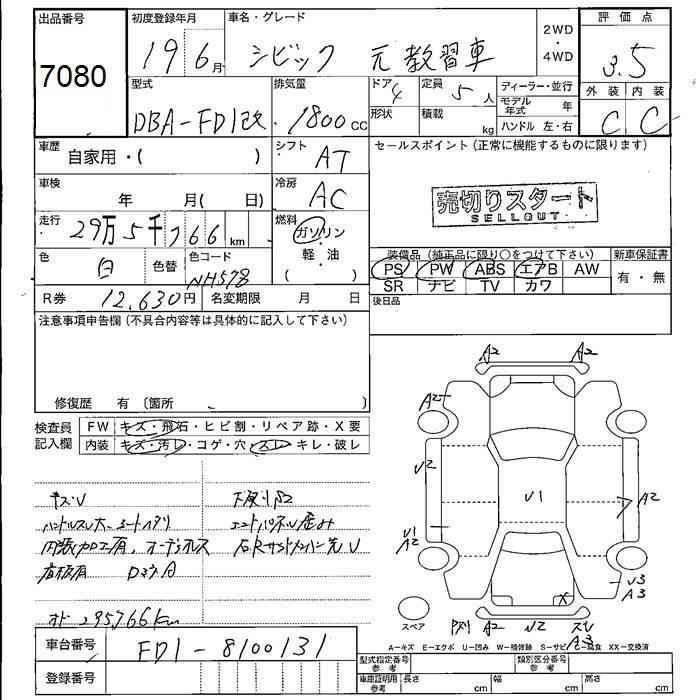 出品番号
7080
初度登録年月
19 6月
車名・グレード
シビック 元教習車
2WD
・
4WD
評価点
3.5
外装 内装
C C
型式
DBA-FD1改
排気量
1800 CC
ドア 4
形状
定員 5 人
積載 kg
ディーラー・並行
モデル年式 年
ハンドル 左・右
車歴
自家用・( )
シフト
AT
セールスポイント(正常に機能するものに限ります)
売切りスタート
SELLOUT
車検
年 月( 日)
冷房
AC
走行
29万5千766km
燃料
ガソリン
・
軽・油
( )
色
白
色替
色コード
NH578
装備品(純正品に限り○をつけて下さい)
PS PW ABS エアB AW
SR ナビ TV カワ
新車保証書
有・無
R券 12,630円 名変期限 月 日
後日品
注意事項申告欄(不具合内容等は具体的に記入して下さい)
修復歴 有 〔箇所
検査員記入欄
FW キズ・飛石・ヒビ割・リペア跡・X要
内装 キズ・汚レ・コゲ・穴・スレ・キレ・破レ
キズU
ハンドルスレ大
内張加工有、オーディオレス
オド 295766km
A2 A2
A2
U2
U1
A2
U1
A2
U3
A3
X
A2
U2
A3
スペア
A-キズ E-エクボ U-凹み W-補修跡 S-サビ C-腐食 XX-交換済
車台番号
FD1-8100131
登録番号
型式指定番号 参考
類別区分番号 参考
車庫証明用 参考
長さ cm
幅 cm
高さ cm